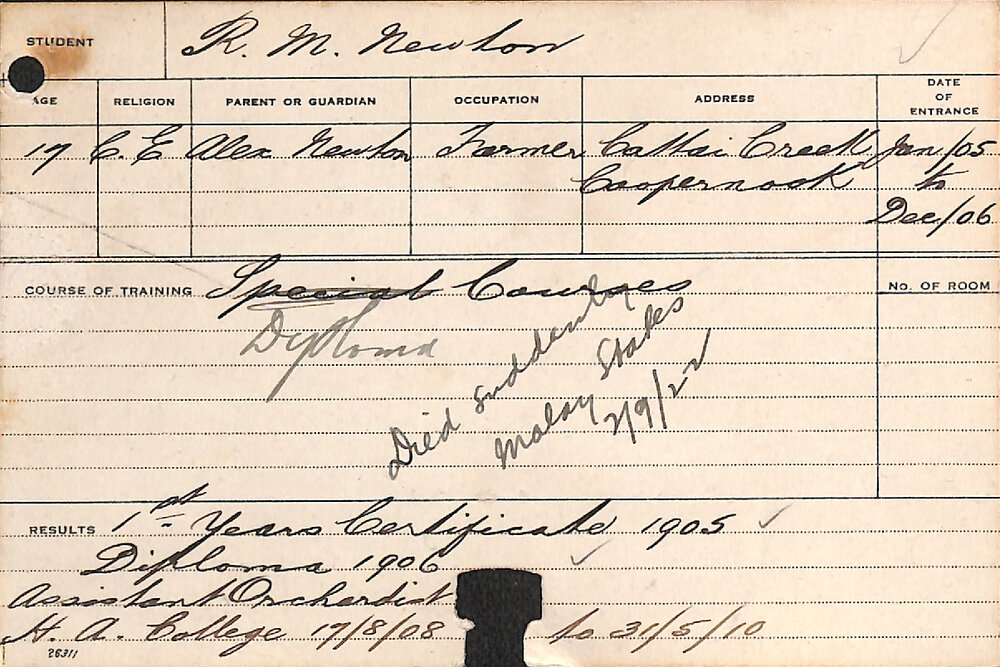 STUDENT R. M. Newton
AGE RELIGION PARENT OR GUARDIAN OCCUPATION ADDRESS DATE OF ENTRANCE
17 C. E Alex Newton Farmer Cattai Creek Jan/05
Coopernook to
Dec/06
COURSE OF TRAINING Special Courses No. OF ROOM
Diploma
Died suddenly
Malay States
2/9/22
RESULTS 1st Years Certificate 1905
Diploma 1906
Assistant Orchardist
H. A. College 17/8/08 to 31/5/10
26311